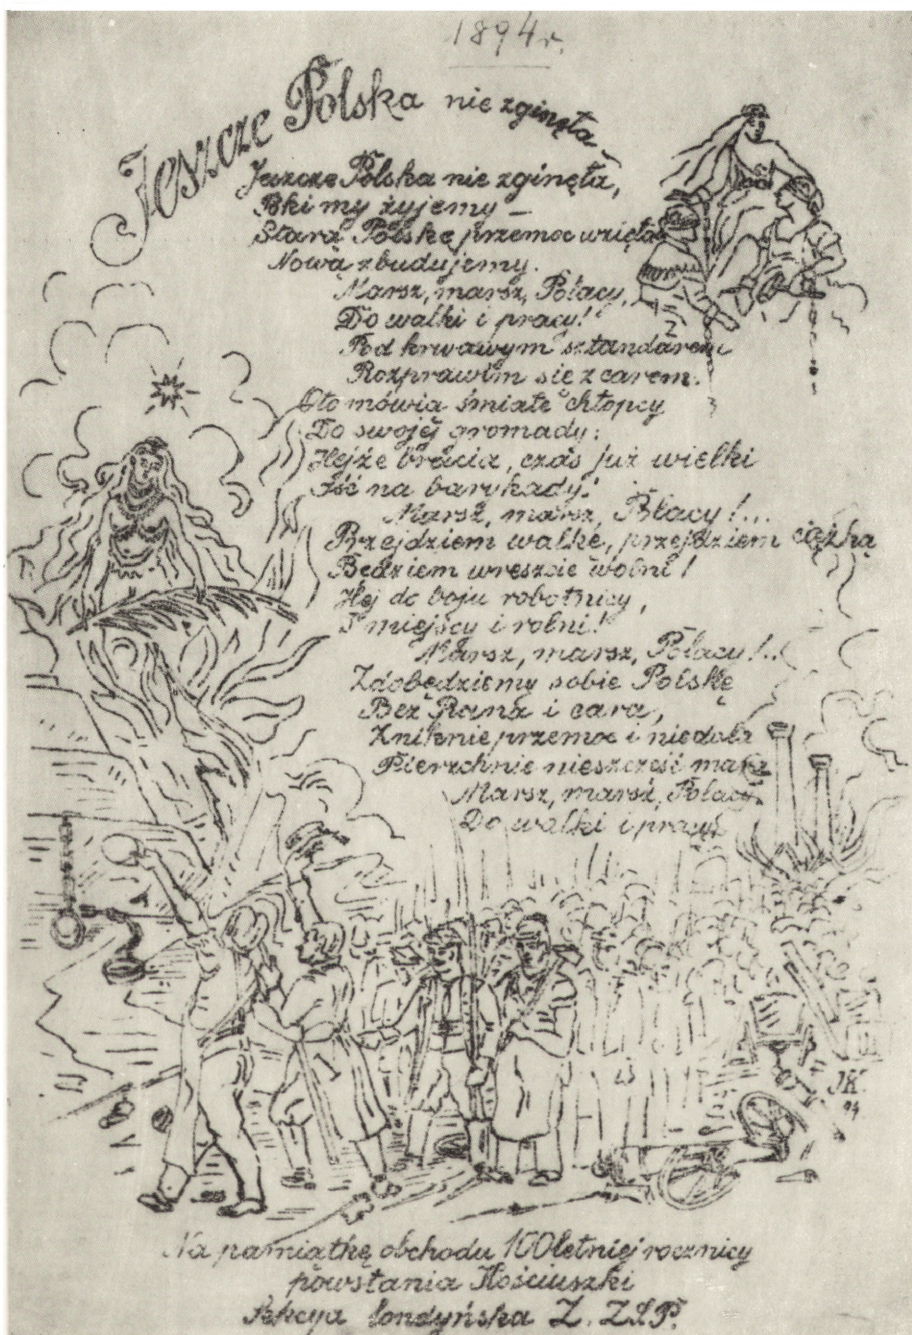 1894 r.
Jeszcze Polska nie zginęła
Jeszcze Polska nie zginęła,
Póki my żyjemy –
Starą Polskę przemoc wzięła
Nową zbudujemy.
Marsz, marsz, Polacy,
Do walki i pracy!
Pod krwawym sztandarem
Rozprawim się z carem.
Oto mówią śmiałe chłopcy
Do swojéj gromady:
Hejże bracia, czas już wielki
Iść na barykady!
Marsz, marsz, Polacy!...
Przejdziem walkę, przejdziem ciężką
Będziem wreszcie wolni!
Hej do boju robotnicy,
I miejscy i rolni!
Marsz, marsz, Polacy!..
Zdobędziemy sobie Polskę
Bez Pana i cara,
Zniknie przemoc i niedola
Pierzchnie nieszczęść mara
Marsz, marsz, Polacy
Do walki i pracy!
JK.
94
Na pamiątkę obchodu 100letniej rocznicy
powstania Kościuszki
Sekcya londyńska Z. Z.S.P.